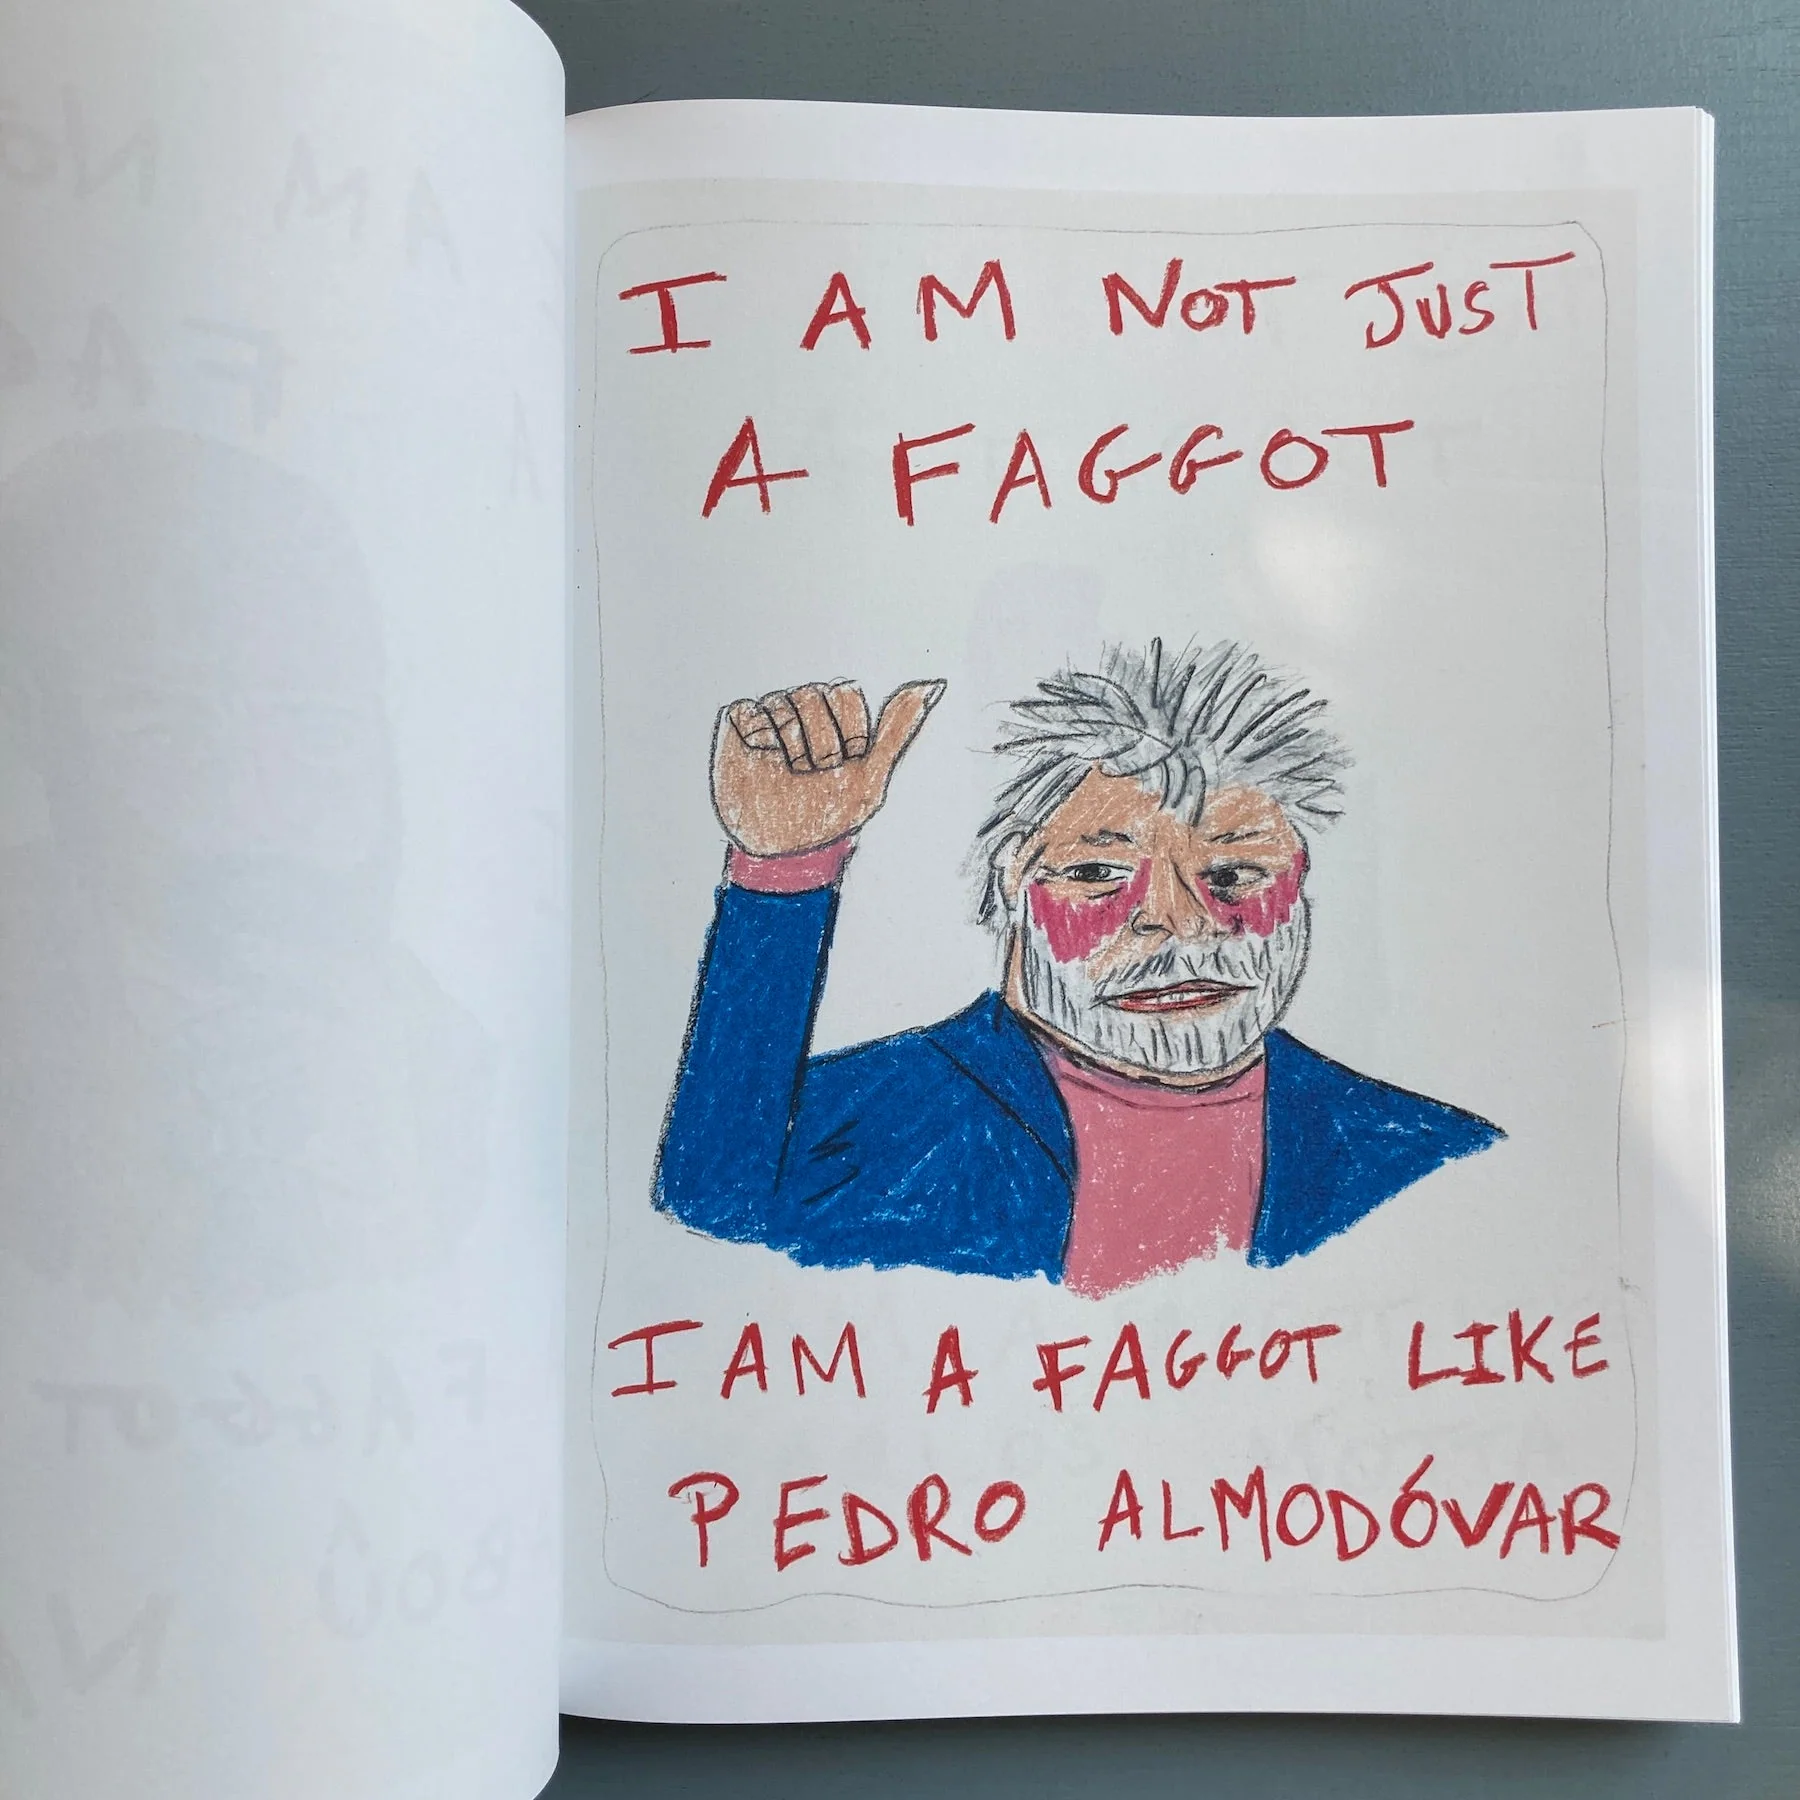 I AM NOT JUST
A FAGGOT
I AM A FAGGOT LIKE
PEDRO ALMODÓVAR